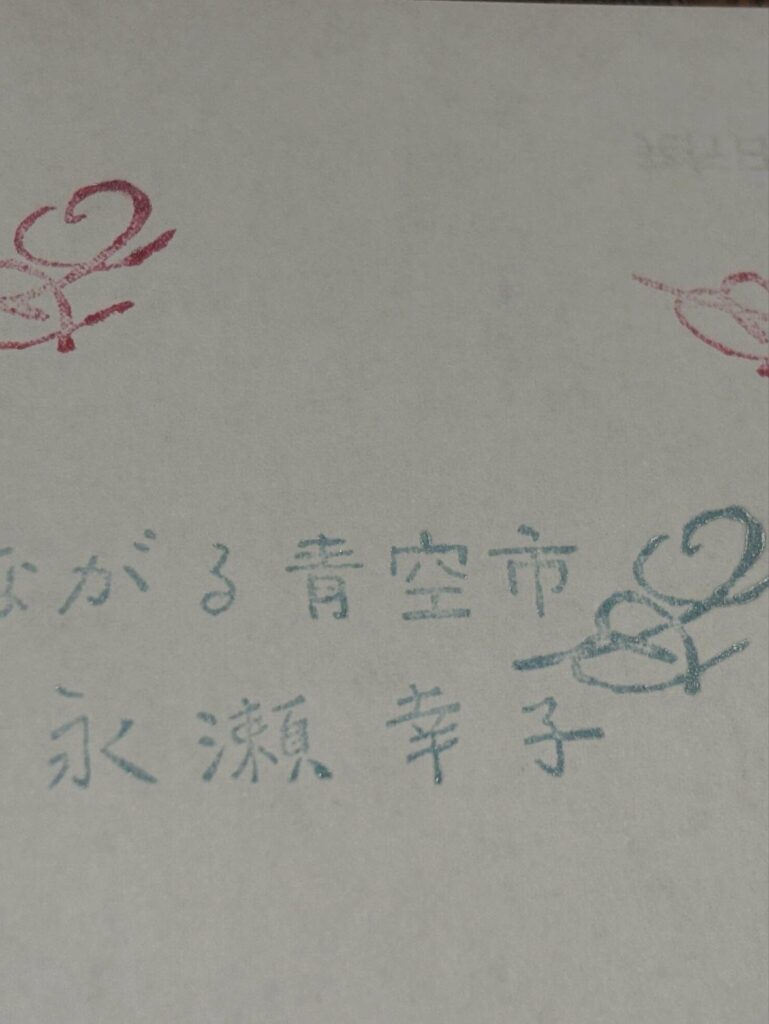 ながる青空市
永瀬幸子